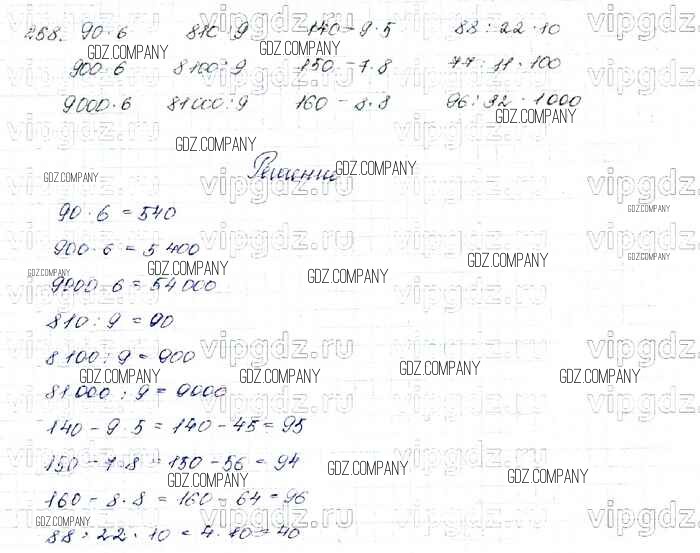 268. 90·6 810:9 140-9·5 88:22·10
900·6 8100:9 150-7·8 77:11·100
9000·6 81000:9 160-8·8 96:32·1000
Решение
90·6=540
900·6=5400
9000·6=54000
810:9=90
8100:9=900
81000:9=9000
140-9·5=140-45=95
150-7·8=150-56=94
160-8·8=160-64=96
88:22·10=4·10=40
vipgdz.ru
GDZ.COMPANY